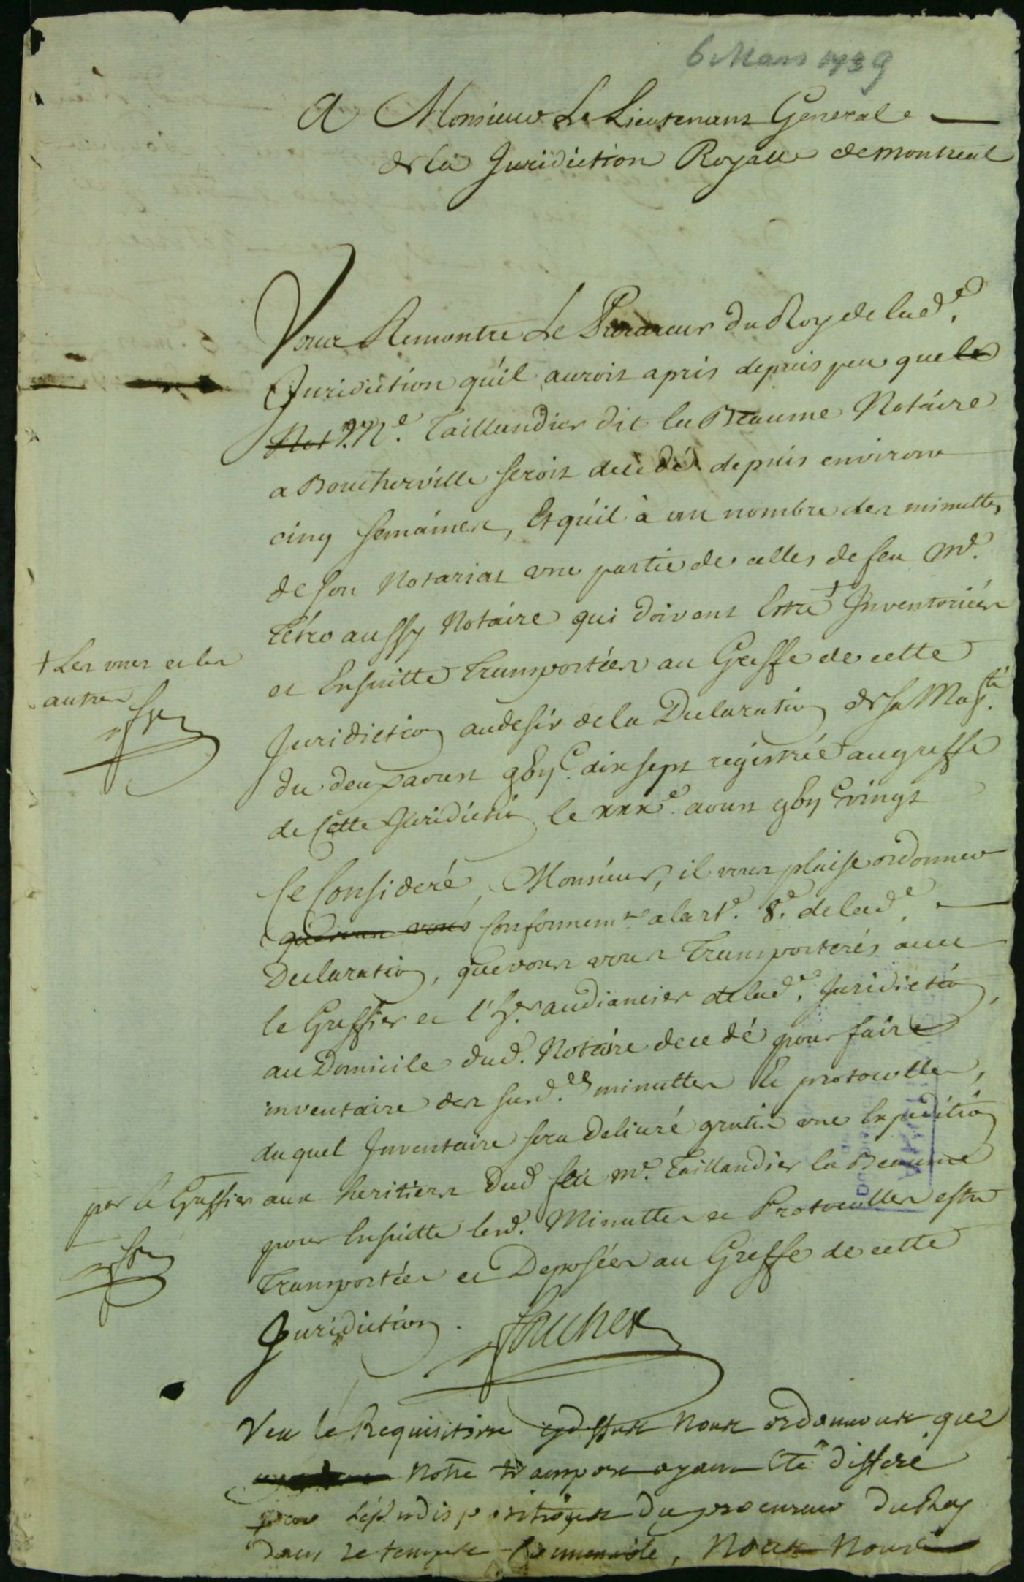 6 Mars 1739
A Monsieur Le Lieutenant General
de la Juridiction Royalle de Montreal
Vous Remontre Le Procureur du Roy de lad.e
Juridiction qu'il auroit apris depuis peu que le
Not. Me. Taillandier dit la Beaume Notaire
a Boucherville seroit decedé depuis environ
cinq semaines, Et qu'il à au nombre des minuttes
de son Notariat une partie de celles de feu Me.
Tétro aussy Notaire qui doivent Estre † Inventoriées
† Les unes et les
autres
et Ensuitte Transportées au Greffe de cette
Juridiction au desir de la Declaration de sa Maj.té
du deux aoust gbyc. dix sept registrée au greffe
de Cette Juridiction le xxxe. aoust gbyc vingt
Ce Consideré, Monsieur, il vous plaise ordonner
conformemt. a l'art. 8e. de lad.e
Declaration, que vous vous Transporterés avec
le Greffier et l'hr. audiancier de lad.e Juridiction,
au Domicile dud. Notaire decedé pour faire
inventaire des susd.es minuttes & protocolles,
duquel Inventaire sera delivré gratis une Expedition
par le Greffier aux heritiers dud feu Me. Taillandier la Beaume
pour Ensuitte lesd. Minuttes et Protocolles estre
Transportées et Deposées au Greffe de cette
Juridiction.
Foucher
Veu le Requisitoire cydessus Nous ordonnons que
Notre transport ayant Eté differé
par du procureur du Roy
dans ce temps, Nous Nous